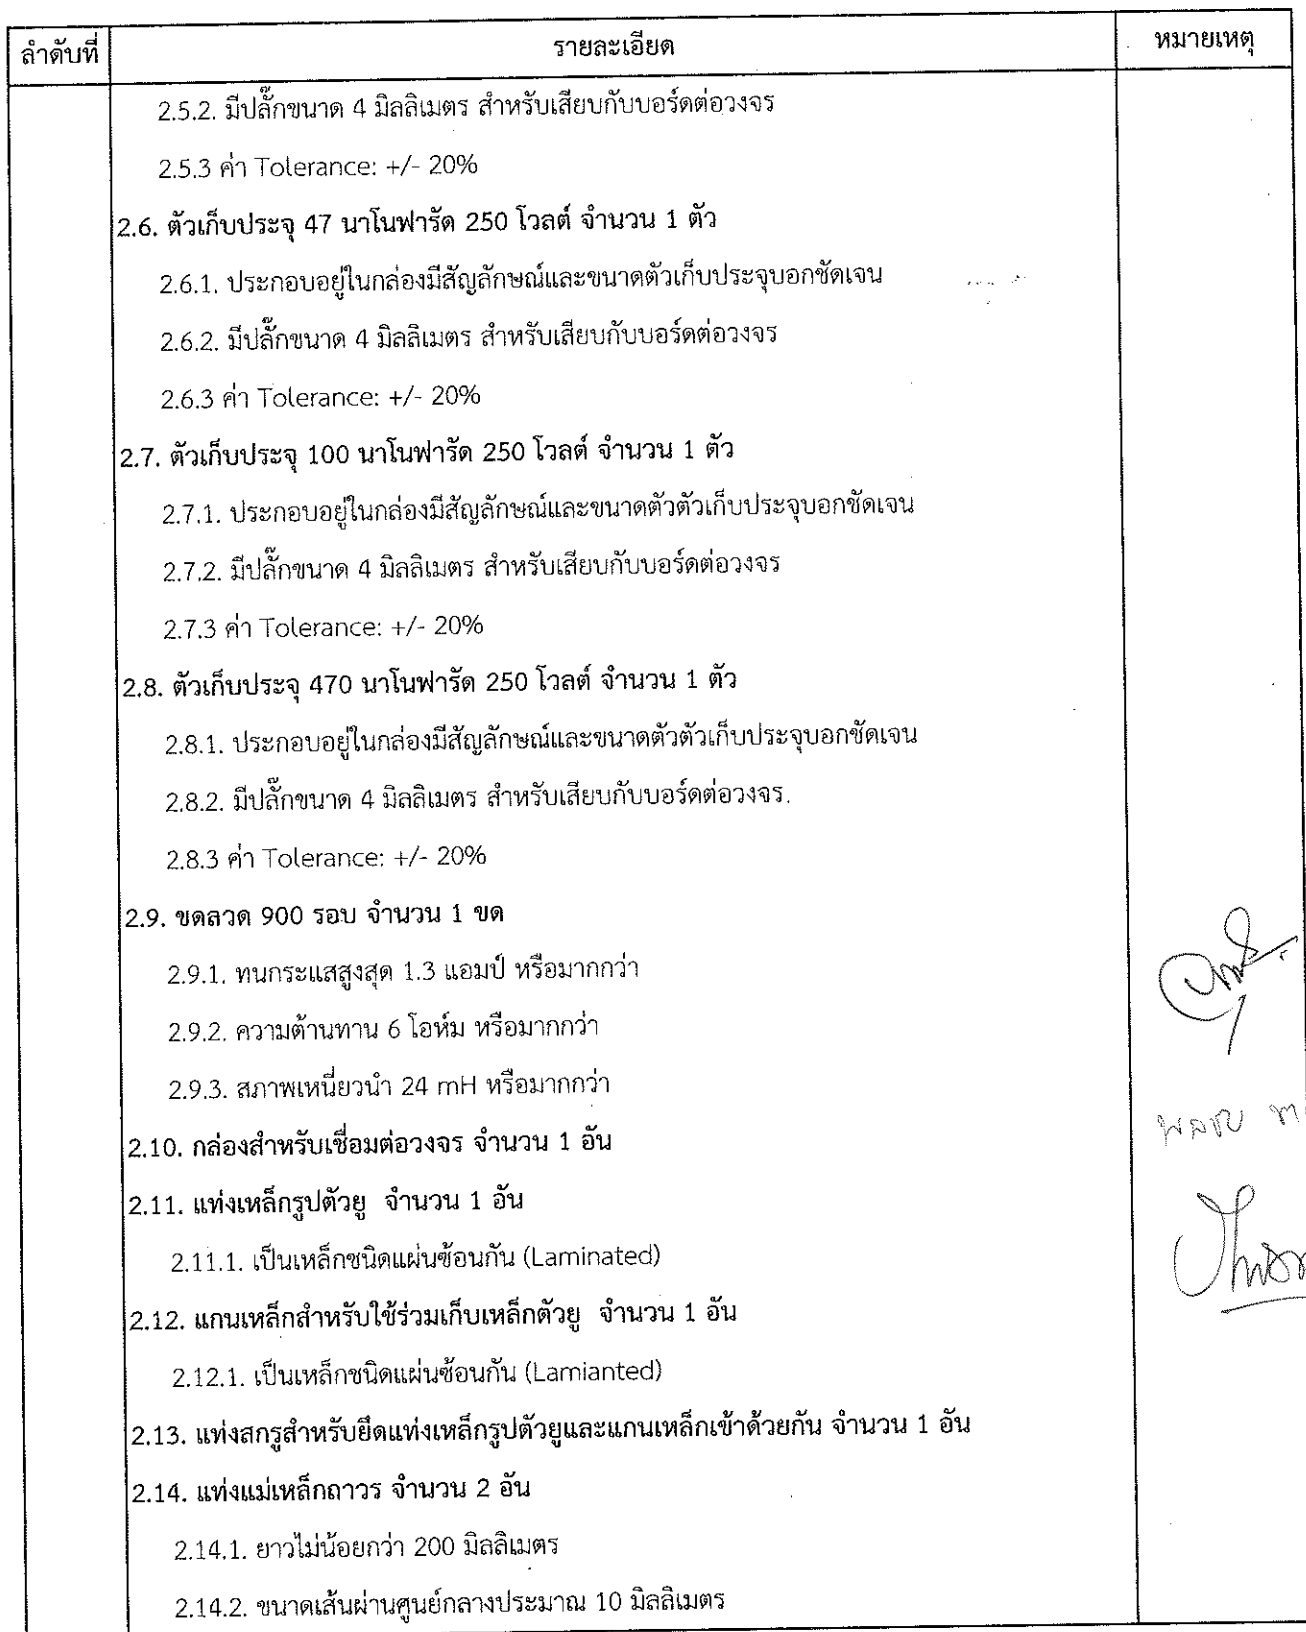 ลำดับที่ รายละเอียด หมายเหตุ
2.5.2. มีปลั๊กขนาด 4 มิลลิเมตร สำหรับเสียบกับบอร์ดต่อวงจร
2.5.3 ค่า Tolerance: +/- 20%
2.6. ตัวเก็บประจุ 47 นาโนฟารัด 250 โวลต์ จำนวน 1 ตัว
2.6.1. ประกอบอยู่ในกล่องมีสัญลักษณ์และขนาดตัวเก็บประจุบอกชัดเจน
2.6.2. มีปลั๊กขนาด 4 มิลลิเมตร สำหรับเสียบกับบอร์ดต่อวงจร
2.6.3 ค่า Tolerance: +/- 20%
2.7. ตัวเก็บประจุ 100 นาโนฟารัด 250 โวลต์ จำนวน 1 ตัว
2.7.1. ประกอบอยู่ในกล่องมีสัญลักษณ์และขนาดตัวตัวเก็บประจุบอกชัดเจน
2.7.2. มีปลั๊กขนาด 4 มิลลิเมตร สำหรับเสียบกับบอร์ดต่อวงจร
2.7.3 ค่า Tolerance: +/- 20%
2.8. ตัวเก็บประจุ 470 นาโนฟารัด 250 โวลต์ จำนวน 1 ตัว
2.8.1. ประกอบอยู่ในกล่องมีสัญลักษณ์และขนาดตัวตัวเก็บประจุบอกชัดเจน
2.8.2. มีปลั๊กขนาด 4 มิลลิเมตร สำหรับเสียบกับบอร์ดต่อวงจร.
2.8.3 ค่า Tolerance: +/- 20%
2.9. ขดลวด 900 รอบ จำนวน 1 ขด
2.9.1. ทนกระแสสูงสุด 1.3 แอมป์ หรือมากกว่า
2.9.2. ความต้านทาน 6 โอห์ม หรือมากกว่า
2.9.3. สภาพเหนี่ยวนำ 24 mH หรือมากกว่า
2.10. กล่องสำหรับเชื่อมต่อวงจร จำนวน 1 อัน
2.11. แท่งเหล็กรูปตัวยู จำนวน 1 อัน
2.11.1. เป็นเหล็กชนิดแผ่นซ้อนกัน (Laminated)
2.12. แกนเหล็กสำหรับใช้ร่วมเก็บเหล็กตัวยู จำนวน 1 อัน
2.12.1. เป็นเหล็กชนิดแผ่นซ้อนกัน (Lamianted)
2.13. แท่งสกรูสำหรับยึดแท่งเหล็กรูปตัวยูและแกนเหล็กเข้าด้วยกัน จำนวน 1 อัน
2.14. แท่งแม่เหล็กถาวร จำนวน 2 อัน
2.14.1. ยาวไม่น้อยกว่า 200 มิลลิเมตร
2.14.2. ขนาดเส้นผ่านศูนย์กลางประมาณ 10 มิลลิเมตร